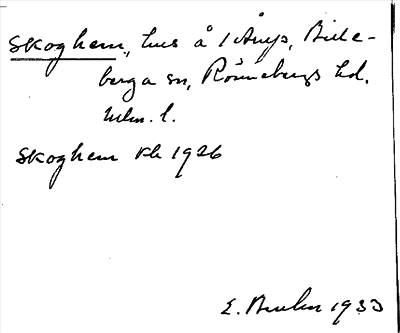 Skoghem, hus å 1 Ånys, Bille-
berga sn, Rönnebergs hd.
Mlm. l.
Skoghem Kb 1926
E. 1933